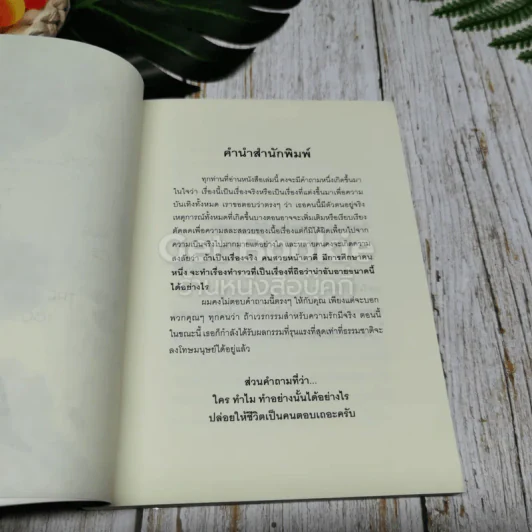 คำนำสำนักพิมพ์
ทุกท่านที่อ่านหนังสือเล่มนี้ คงจะมีคำถามหนึ่งเกิดขึ้นมา
ในใจว่า เรื่องนี้เป็นเรื่องจริงหรือเป็นเรื่องที่แต่งขึ้นมาเพื่อความ
บันเทิงทั้งหมด เราขอตอบว่าตรงๆ ว่า เธอคนนี้มีตัวตนอยู่จริง
เหตุการณ์ทั้งหมดที่เกิดขึ้นบางตอนอาจจะเพิ่มเติมหรือเรียบเรียง
ตัดลดเพื่อความสละสลวยของเนื้อเรื่องแต่ก็มิได้ผิดเพี้ยนไปจาก
ความเป็นจริงไปมากมายแต่อย่างใด และหลายคนคงจะเกิดความ
สงสัยว่า ถ้าเป็นเรื่องจริง คนสวยหน้าตาดี มีการศึกษาคน
หนึ่ง จะทำเรื่องราวที่เป็นเรื่องที่ถือว่าน่าอับอายขนาดนี้
ได้อย่างไร
ผมคงไม่ตอบคำถามนี้ตรงๆ ให้กับคุณ เพียงแต่จะบอก
พวกคุณๆ ทุกคนว่า ถ้าเวรกรรมสำหรับความรักมีจริง ตอนนี้
ในขณะนี้ เธอก็กำลังได้รับผลกรรมที่รุนแรงที่สุดเท่าที่ธรรมชาติจะ
ลงโทษมนุษย์ได้อยู่แล้ว
ส่วนคำถามที่ว่า...
ใคร ทำไม ทำอย่างนั้นได้อย่างไร
ปล่อยให้ชีวิตเป็นคนตอบเถอะครับ